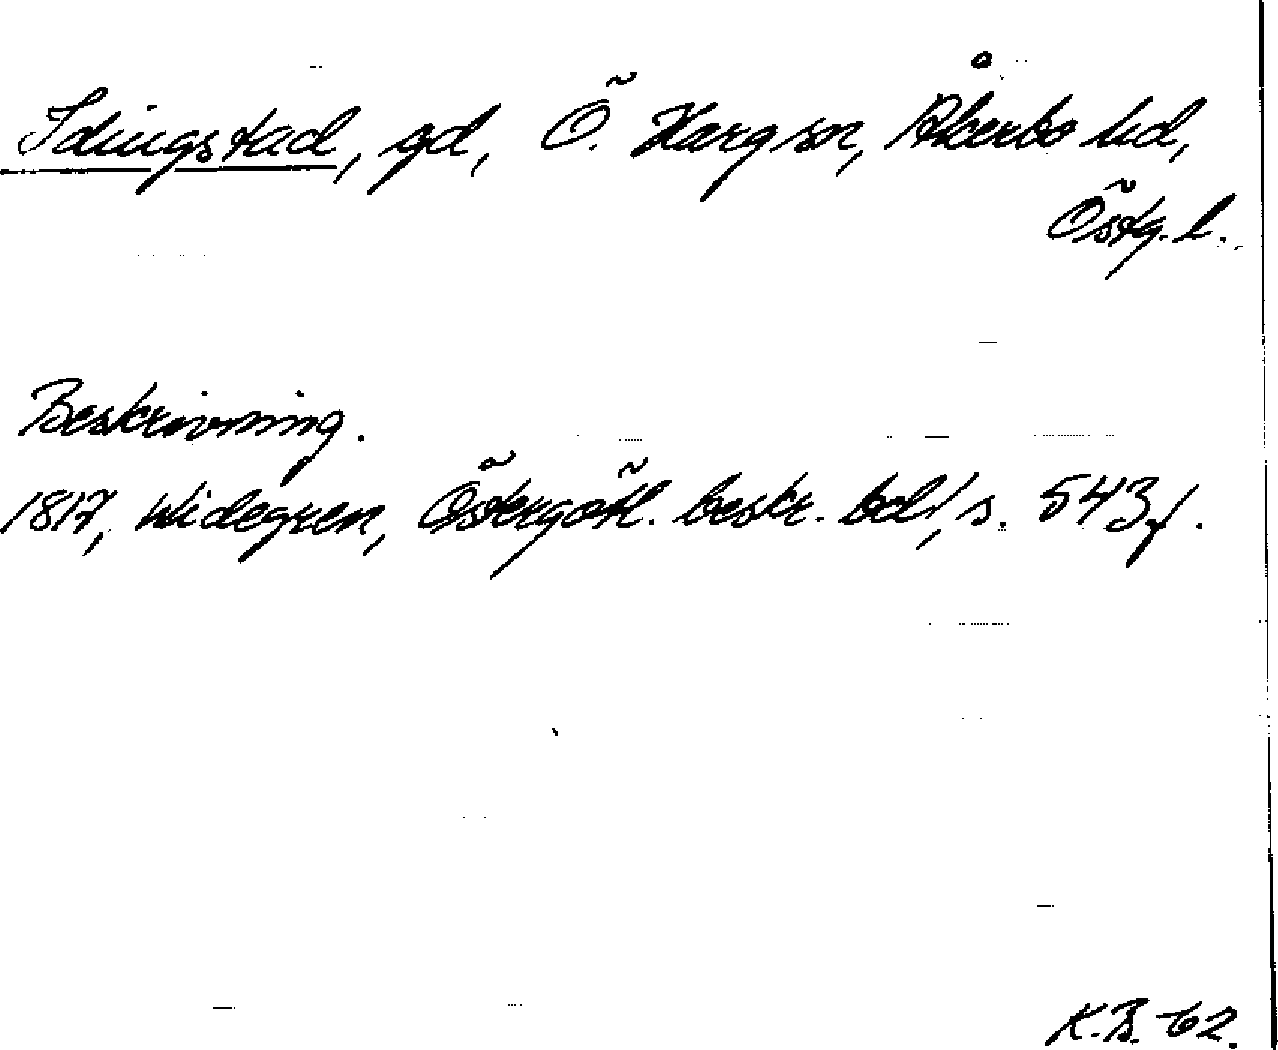 Idingstad, gd, Ö. Harg sn, Åkerbo hd,
Östg. l.
Beskrivning.
1817, Widegren, Östergötl. beskr. bd 1, s. 543 f.
K.B. -62.